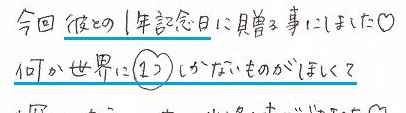 今回 彼との1年記念日に贈る事にしました♡
何か世界に1つしかないものがほしくて